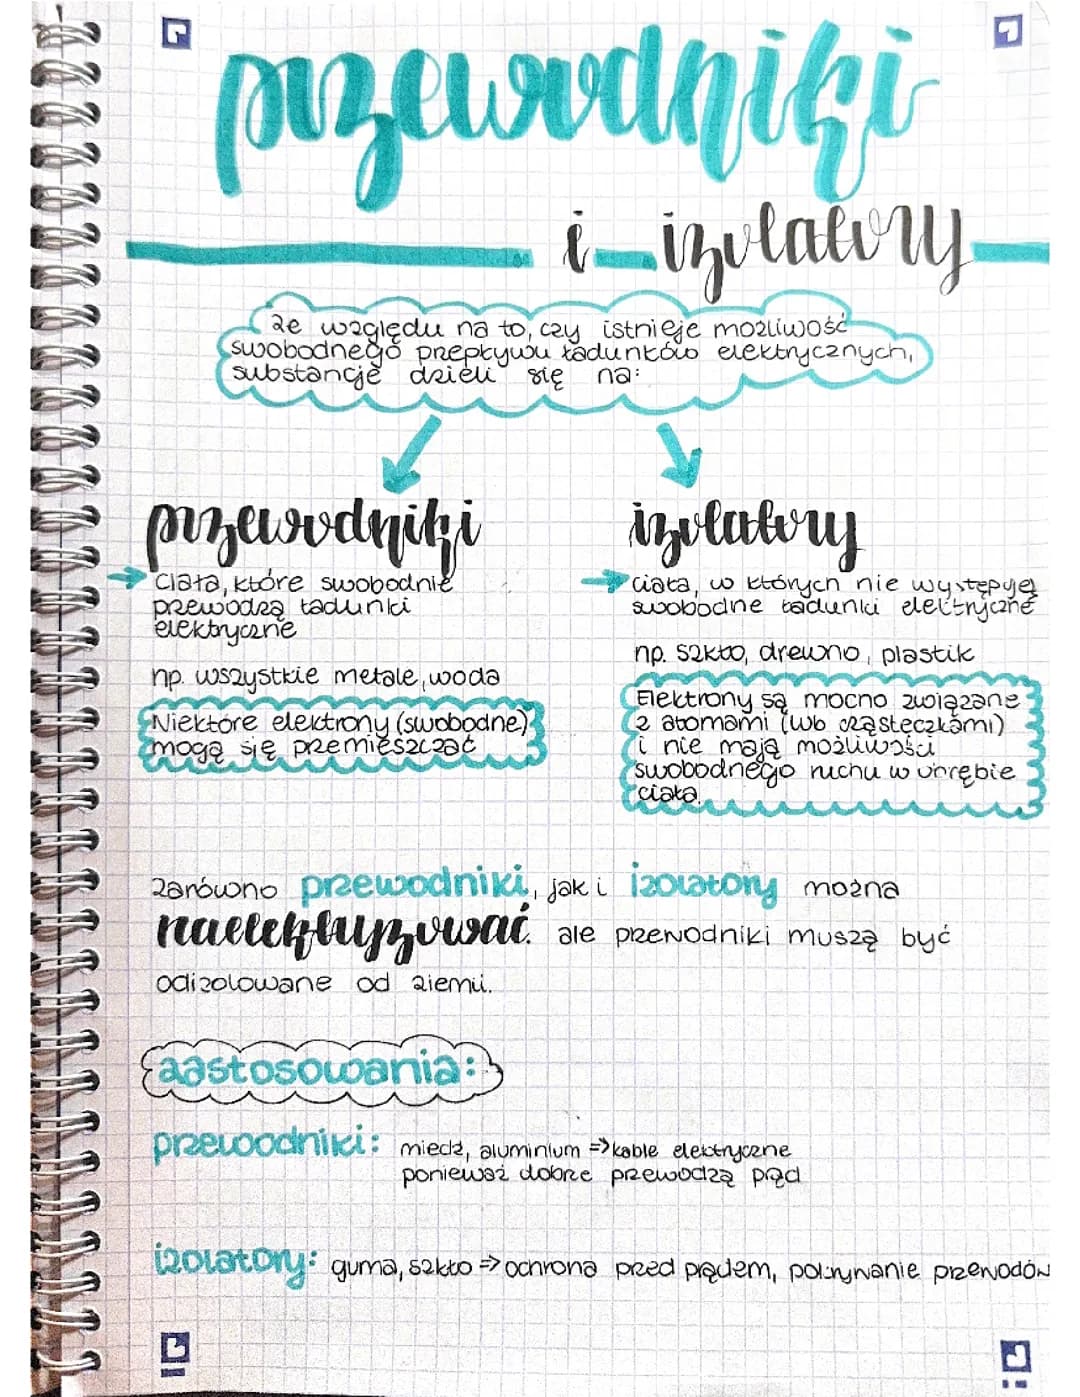 przewodniki
i izolatory
Ze względu na to, czy istnieje możliwość
swobodnego prepływu ładunków elektrycznych,
substancje dzieli się na:
przewodniki
ciała, które swobodnie
przewodzą ładunki
elektryczne
np. wszystkie metale, woda
Niektóre elektrony (swobodne)
mogą się przemieszczać
izolatory
ciała, w których nie występują
swobodne ładunki elektryczne
np. szkło, drewno, plastik
Elektrony są mocno związane
z atomami (lub cząsteczkami)
i nie mają możliwości
swobodnego ruchu w obrębie
ciała.
zarówno przewodniki, jak i izolatory można
naelektryzować. ale przewodniki muszą być
odizolowane od ziemii.
zastosowania:
przewodniki: miedź, aluminium => kable elektryczne
ponieważ dobrze przewodzą prąd
izolatory: guma, szkło => ochrona przed prądem, pokrywanie przewodów